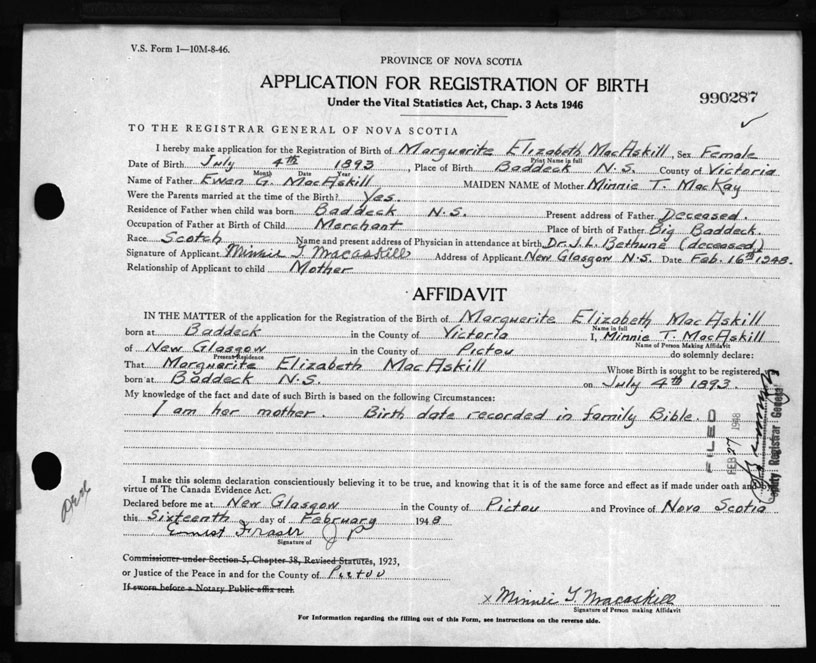 V.S. Form 1—10M-8-46.
PROVINCE OF NOVA SCOTIA
APPLICATION FOR REGISTRATION OF BIRTH
990287
Under the Vital Statistics Act, Chap. 3 Acts 1946
TO THE REGISTRAR GENERAL OF NOVA SCOTIA
I hereby make application for the Registration of Birth of Marguerite Elizabeth MacAskill, Sex Female
Print Name in full
Date of Birth July 4th 1893, Place of Birth Baddeck N.S. County of Victoria
Month Date Year
Name of Father Ewen G. MacAskill MAIDEN NAME of Mother Minnie T. MacKay
Were the Parents married at the time of the Birth? Yes.
Residence of Father when child was born Baddeck N.S. Present address of Father Deceased.
Occupation of Father at Birth of Child Merchant Place of birth of Father Big Baddeck.
Race Scotch Name and present address of Physician in attendance at birth Dr. J.L. Bethune (deceased)
Signature of Applicant Minnie T. Macaskill Address of Applicant New Glasgow N.S. Date Feb. 16th 1948.
Relationship of Applicant to child Mother
AFFIDAVIT
IN THE MATTER of the application for the Registration of the Birth of Marguerite Elizabeth MacAskill
Name in full
born at Baddeck in the County of Victoria I, Minnie T. MacAskill
Name of Person Making Affidavit
of New Glasgow in the County of Pictou do solemnly declare:
Present Residence
That Marguerite Elizabeth MacAskill Whose Birth is sought to be registered,
born at Baddeck N.S. on July 4th 1893.
My knowledge of the fact and date of such Birth is based on the following Circumstances:
I am her mother. Birth date recorded in family Bible.
FILED
FEB 27 1948
Deputy Registrar General
I make this solemn declaration conscientiously believing it to be true, and knowing that it is of the same force and effect as if made under oath and
virtue of The Canada Evidence Act.
Declared before me at New Glasgow in the County of Pictou and Province of Nova Scotia
this Sixteenth day of February 1948
Ernest Fraser J P
Signature of
Commissioner under Section 5, Chapter 38, Revised Statutes, 1923,
or Justice of the Peace in and for the County of Pictou
If sworn before a Notary Public affix seal.
x Minnie T. Macaskill
Signature of Person making Affidavit
For Information regarding the filling out of this Form, see instructions on the reverse side.